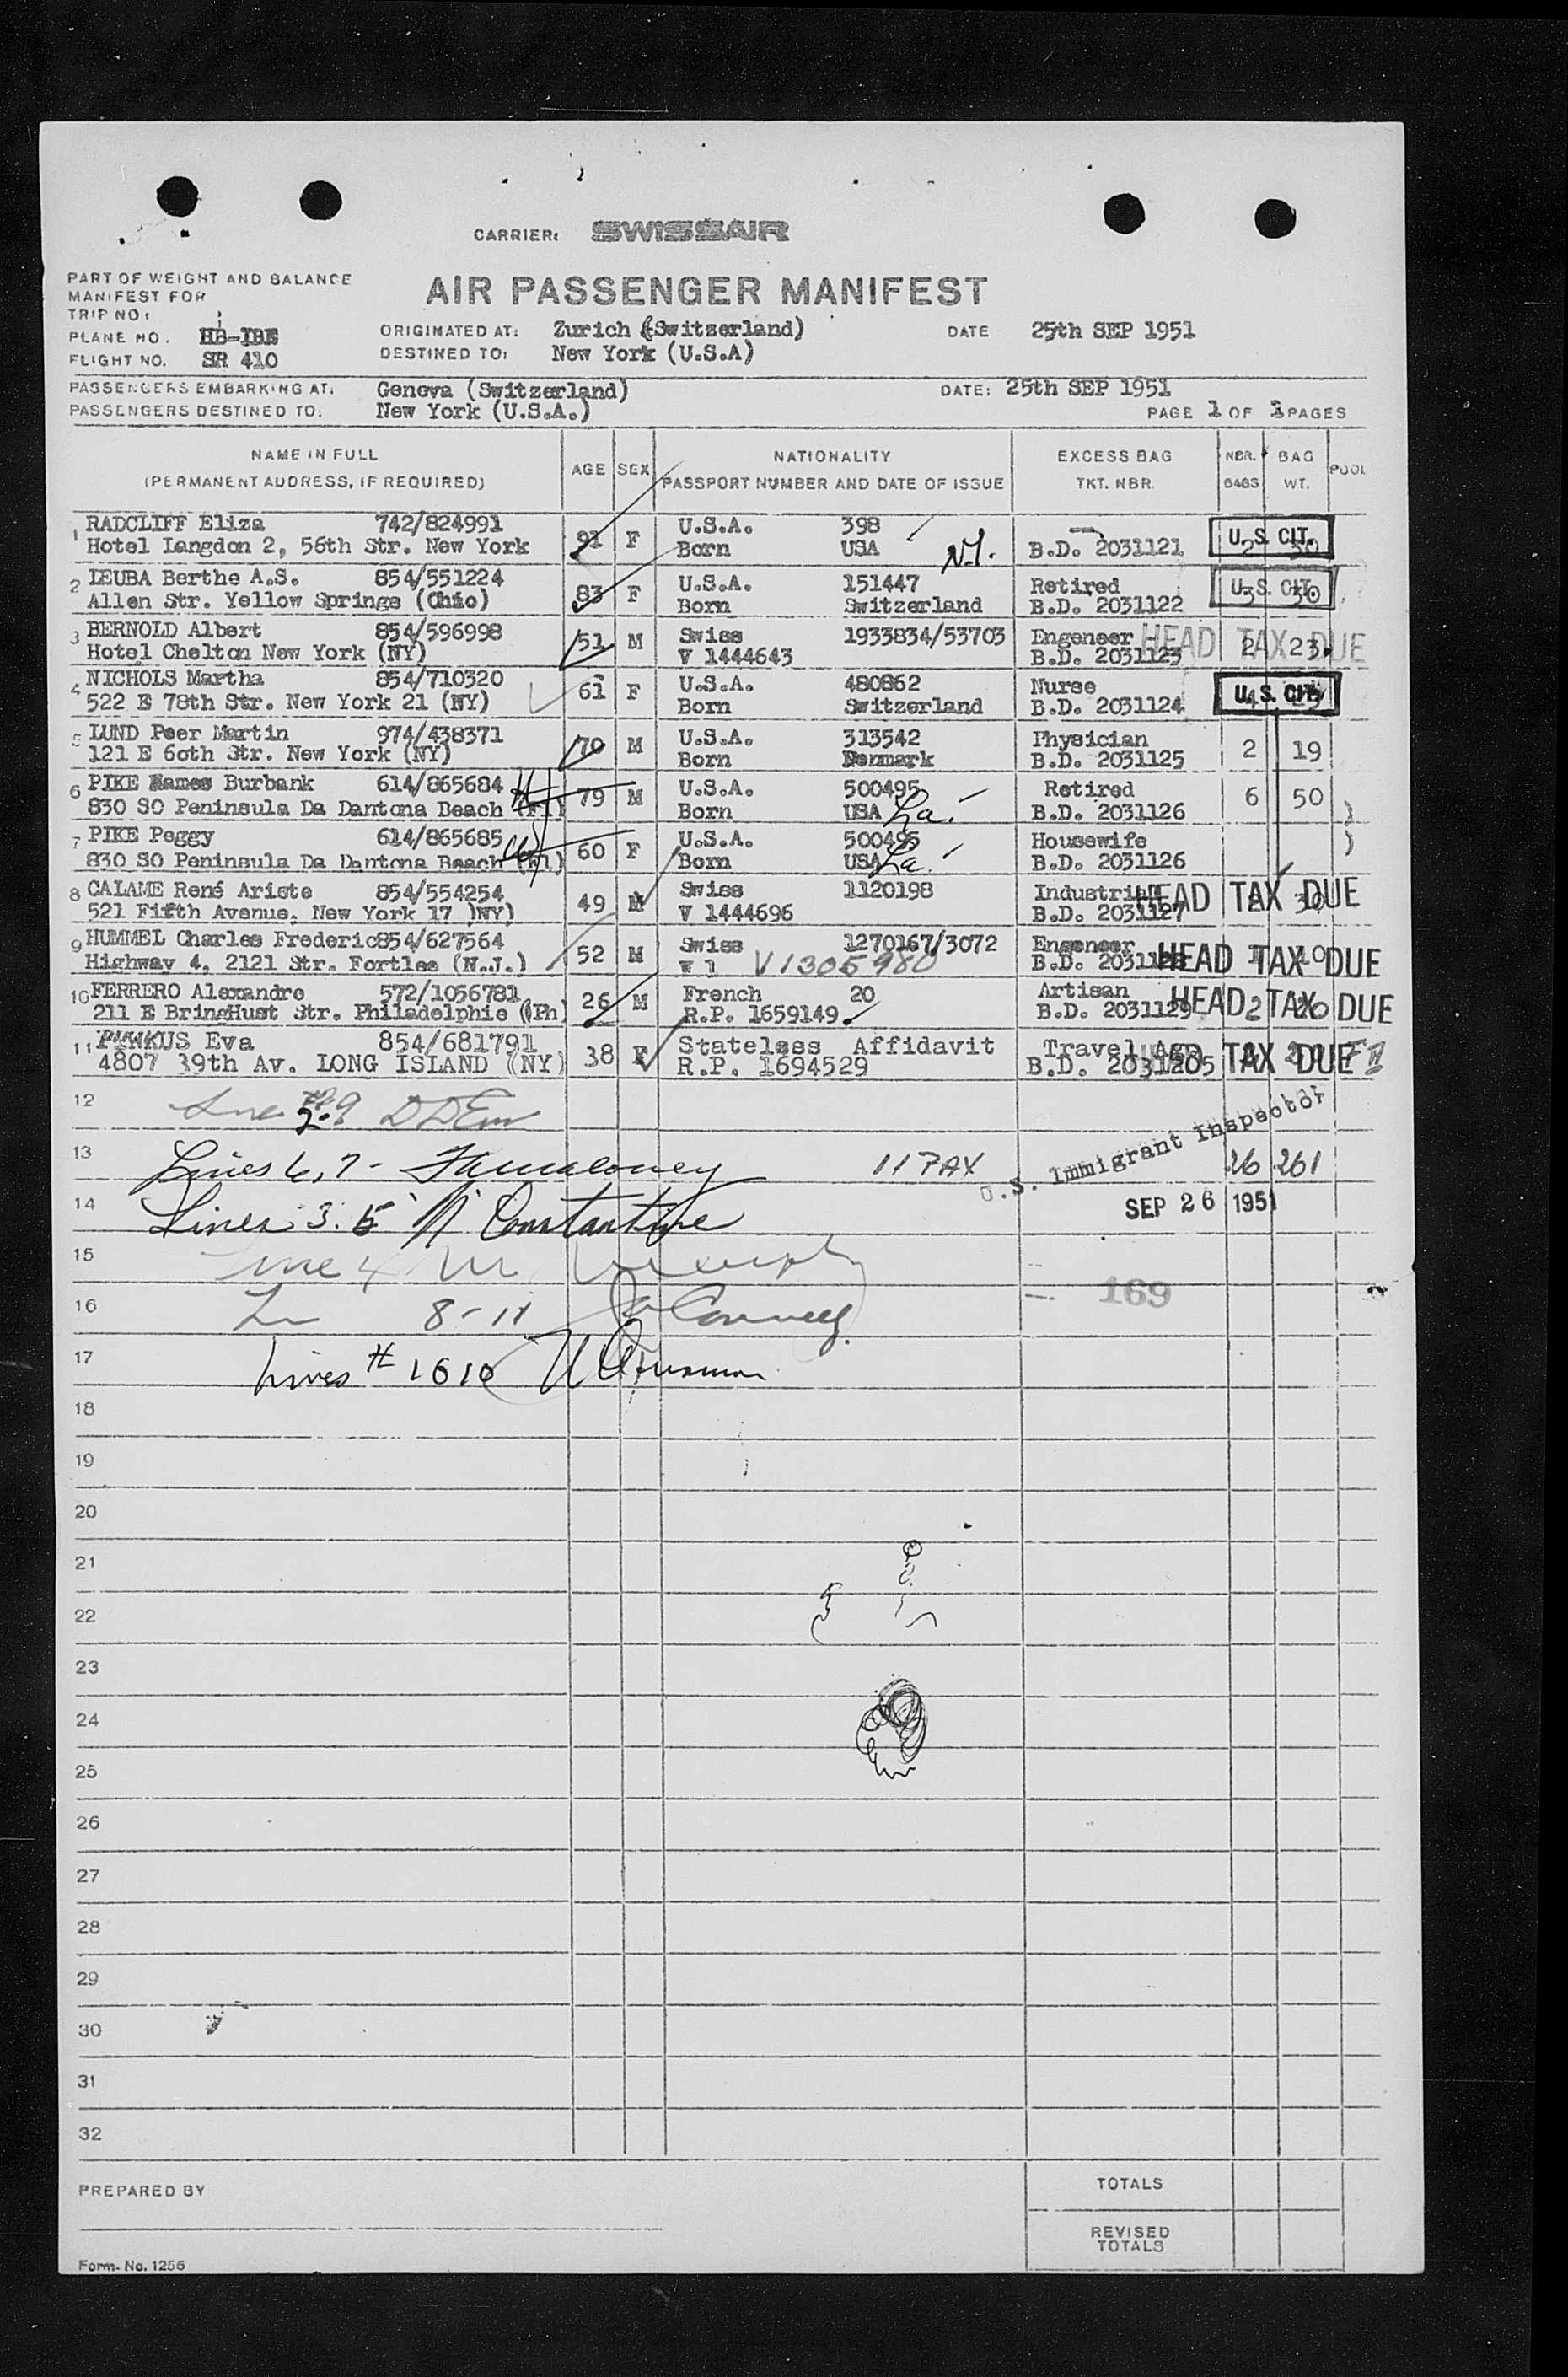 CARRIER: SWISSAIR
PART OF WEIGHT AND BALANCE
MANIFEST FOR
TRIP NO:
AIR PASSENGER MANIFEST
PLANE NO. HB-IBE ORIGINATED AT: Zurich (Switzerland) DATE 25th SEP 1951
FLIGHT NO. SR 410 DESTINED TO: New York (U.S.A)
PASSENGERS EMBARKING AT: Geneva (Switzerland) DATE: 25th SEP 1951
PASSENGERS DESTINED TO: New York (U.S.A.) PAGE 1 OF 1 PAGES
NAME IN FULL AGE SEX NATIONALITY EXCESS BAG NBR. BAG POOL
(PERMANENT ADDRESS, IF REQUIRED) PASSPORT NUMBER AND DATE OF ISSUE TKT. NBR. BAGS WT.
1 RADCLIFF Eliza 742/824991 91 F U.S.A. 398 U.S. CIT.
Hotel Langdon 2, 56th Str. New York Born USA B.D. 2031121 2 30
2 LEUBA Berthe A.S. 854/551224 83 F U.S.A. 151447 Retired U.S. CIT.
Allen Str. Yellow Springs (Ohio) Born Switzerland B.D. 2031122 3 30
3 BERNOLD Albert 854/596998 51 M Swiss 1933834/53703 Engeneer HEAD TAX DUE
Hotel Chelton New York (NY) V 1444643 B.D. 2031123 2 23
4 NICHOLS Martha 854/710320 61 F U.S.A. 480862 Nurse U.S. CIT.
522 E 78th Str. New York 21 (NY) Born Switzerland B.D. 2031124
5 LUND Peer Martin 974/438371 70 M U.S.A. 313542 Physician
121 E 60th Str. New York (NY) Born Denmark B.D. 2031125 2 19
6 PIKE James Burbank 614/865684 79 M U.S.A. 500495 Retired 6 50
830 SO Peninsula Da Dantona Beach (Fl) Born USA La. B.D. 2031126 )
7 PIKE Peggy 614/865685 60 F U.S.A. 500495 Housewife )
830 SO Peninsula Da Dantona Beach (Fl) Born USA La. B.D. 2031126
8 CALAME René Ariste 854/554254 49 M Swiss 1120198 Industrial HEAD TAX DUE
521 Fifth Avenue, New York 17 )NY) V 1444696 B.D. 2031127
9 HUMMEL Charles Frederic 854/627564 52 M Swiss 1270167/3072 Engeneer HEAD TAX DUE
Highway 4, 2121 Str. Fortlee (N.J.) V1305980 B.D. 2031128
10 FERRERO Alexandre 572/1056781 26 M French 20 Artisan HEAD TAX DUE
211 E BringHust Str. Philadelphie (Ph) R.P. 1659149 B.D. 2031129 2 20
11 PINKUS Eva 854/681791 38 F Stateless Affidavit Travel Age. HEAD TAX DUE
4807 39th Av. LONG ISLAND (NY) R.P. 1694529 B.D. 2031205
12
13 Lines 6, 7 - 11 PAX U.S. Immigrant Inspector 26 261
14 Lines 3. 5 N Constantine SEP 26 1951
15 Line 4
16 8-11 169
17 Lines # 1 & 10
18
19
20
21
22
23
24
25
26
27
28
29
30
31
32
PREPARED BY TOTALS
REVISED
TOTALS
Form. No. 1256